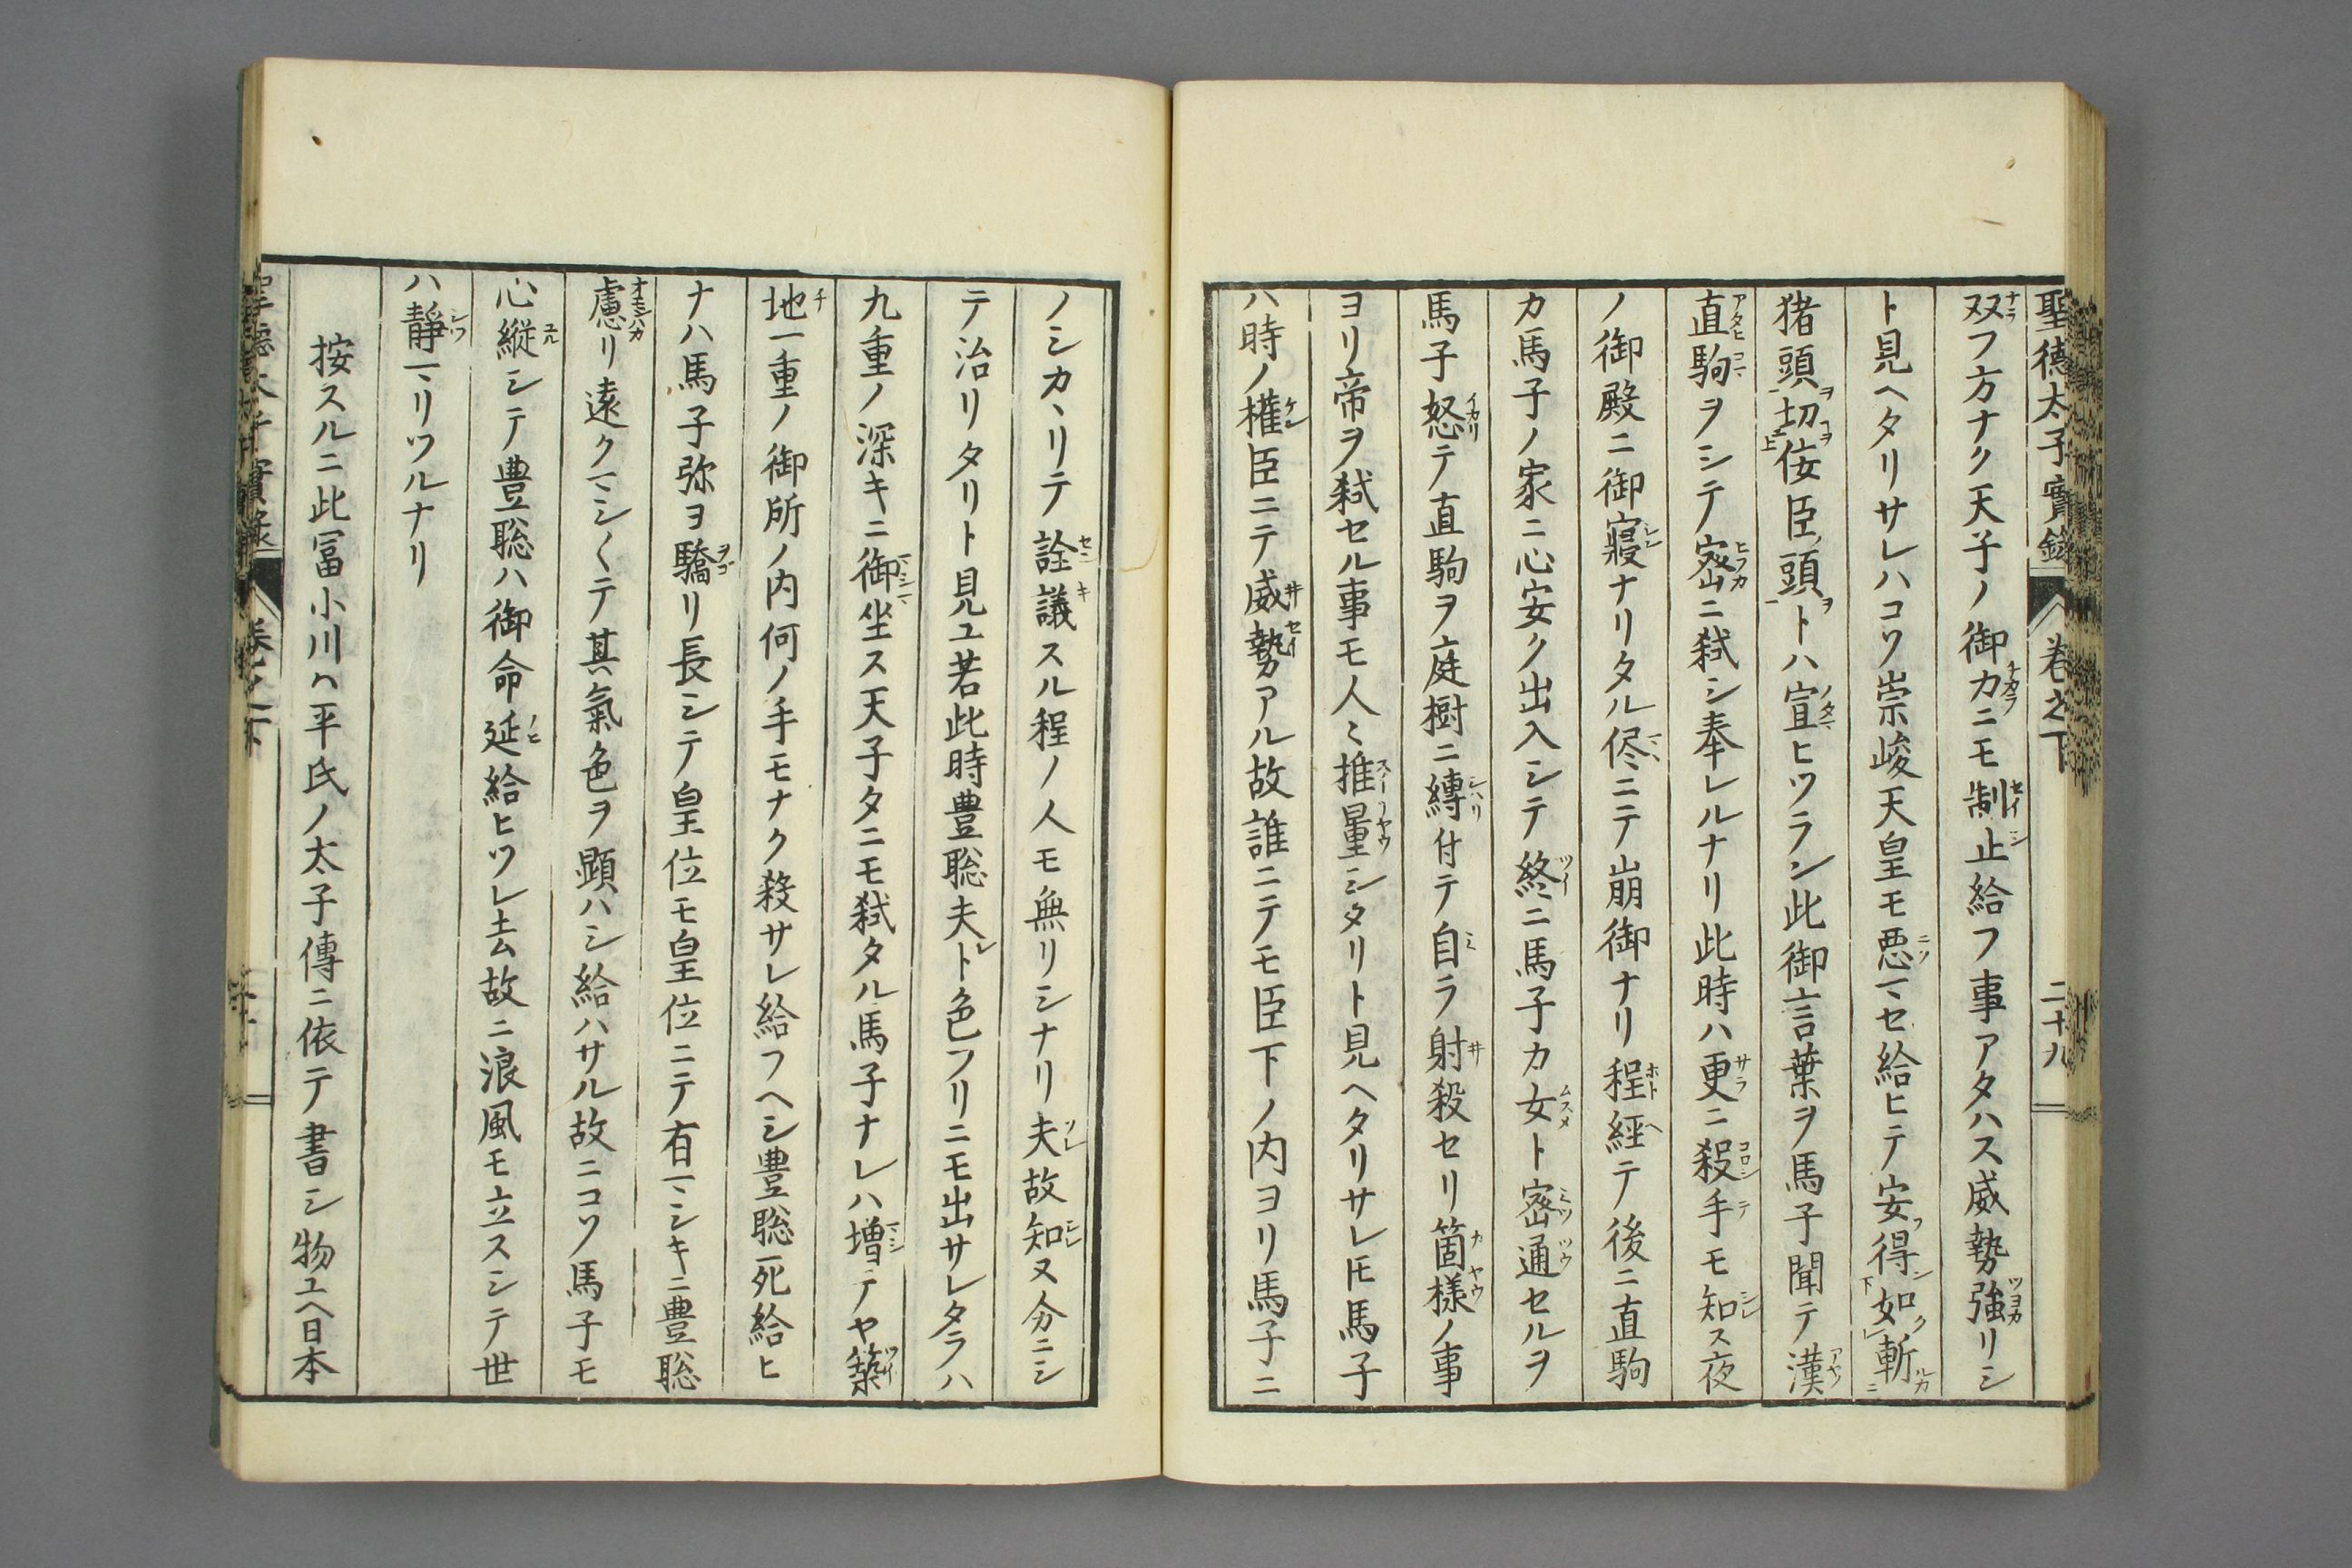 聖徳太子實録 卷之下 二十九
双フ方ナク天子ノ御力ニモ制止給フ事アタハス威勢強リシ
ト見ヘタリサレハコソ崇峻天皇モ悪マセ給ヒテ安得如斬
猪頭切侫臣頭トハ宣ヒツラン此御言葉ヲ馬子聞テ漢
直駒ヲシテ密ニ弑シ奉レルナリ此時ハ更ニ殺手モ知ス夜
ノ御殿ニ御寢ナリタル侭ニテ崩御ナリ程經テ後ニ直駒
カ馬子ノ家ニ心安ク出入シテ終ニ馬子カ女ト密通セルヲ
馬子怒テ直駒ヲ庭樹ニ縛付テ自ラ射殺セリ箇様ノ事
ヨリ帝ヲ弑セル事モ人〻推量シタリト見ヘタリサレ𪜈馬子
ハ時ノ權臣ニテ威勢アル故誰ニテモ臣下ノ内ヨリ馬子ニ
ノシカヽリテ詮議スル程ノ人モ無リシナリ夫故知ヌ分ニシ
テ治リタリト見ユ若此時豊聡夫ト色フリニモ出サレタラハ
九重ノ深キニ御坐ス天子タニモ弑タル馬子ナレハ増テヤ築
地一重ノ御所ノ内何ノ手モナク殺サレ給フヘシ豊聡死給ヒ
ナハ馬子弥ヨ驕リ長シテ皇位モ皇位ニテ有マシキニ豊聡
慮リ遠クマシ〱テ其氣色ヲ顕ハシ給ハサル故ニコソ馬子モ
心縦シテ豊聡ハ御命延給ヒツレ去故ニ浪風モ立スシテ世
ハ静マリツルナリ
按スルニ此冨小川ハ平氏ノ太子傳ニ依テ書シ物ユヘ日本